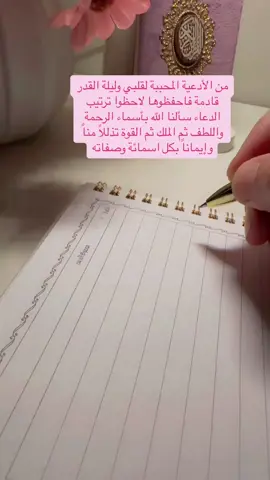 من الأدعية المحببة لقلبي وليلة القدر
قادمة فاحفظوها لاحظوا ترتيب
الدعاء سألنا الله بأسماء الرحمة
واللطف ثم الملك ثم القوة تذللاً منا
وإيماناً بكل اسمائة وصفاته